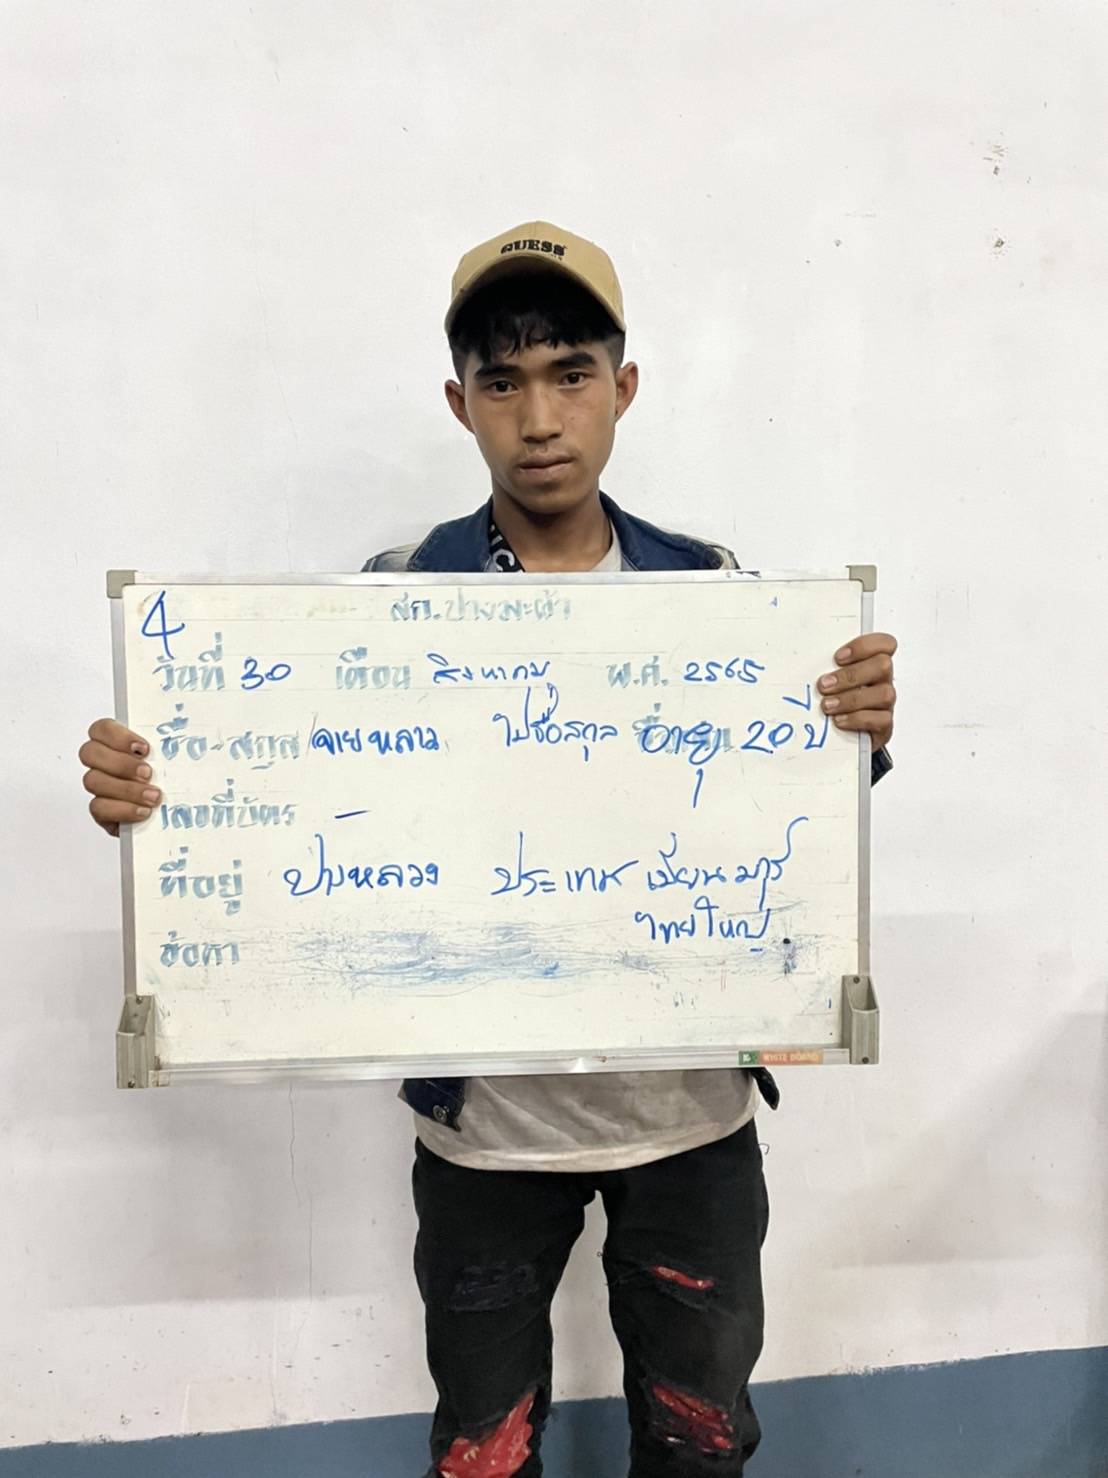 GUESS
4
สภ.ปางมะผ้า
วันที่ 30 เดือน สิงหาคม พ.ศ. 2565
ชื่อ-สกุล จายหลาว ไม่ชื่อสกุล อายุ 20 ปี
เลขที่บัตร -
ที่อยู่ ปางหลวง ประเทศ เมียนมาร์
ไทยใหญ่
ข้อหา
WHITE BOARD